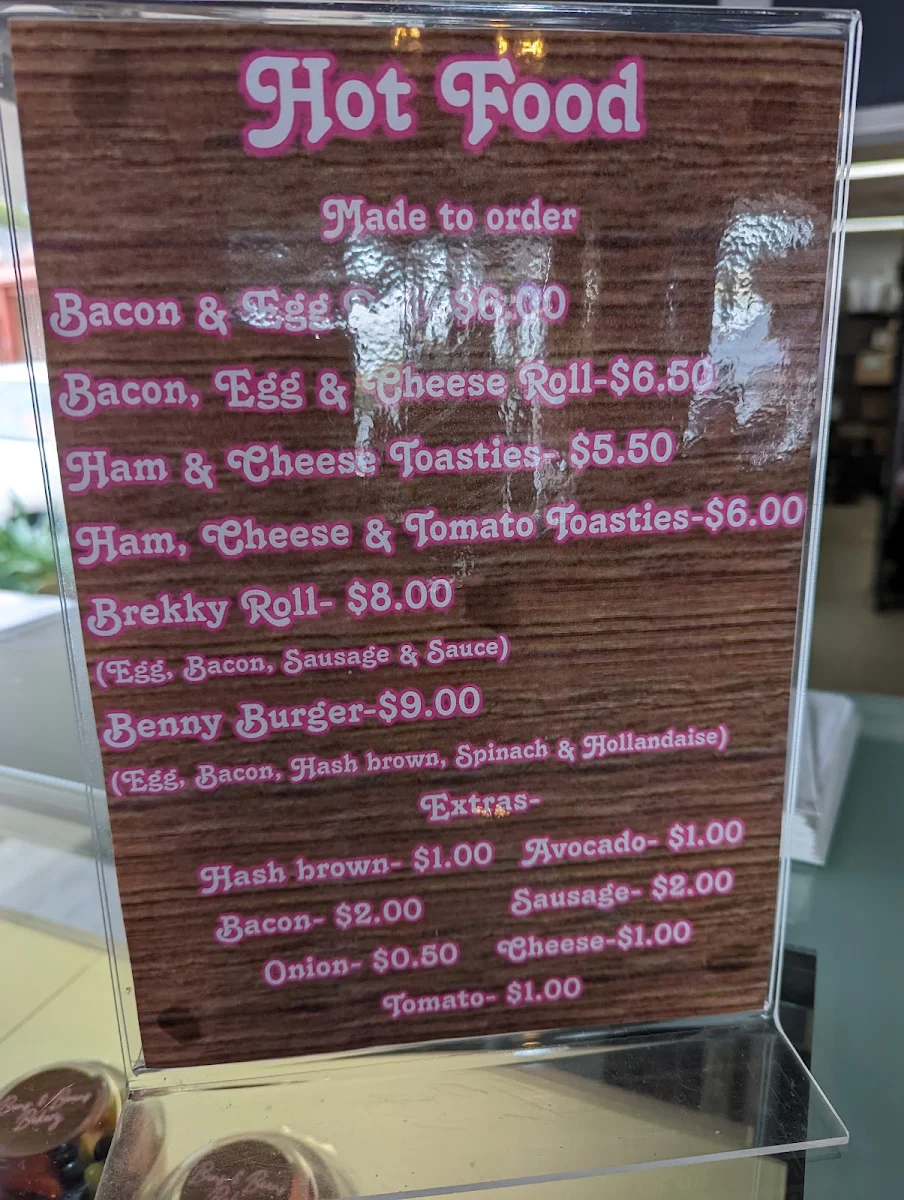 Hot Food
Made to order
Bacon & Egg $6.00
Bacon, Egg & Cheese Roll-$6.50
Ham & Cheese Toasties- $5.50
Ham, Cheese & Tomato Toasties-$6.00
Brekky Roll- $8.00
(Egg, Bacon, Sausage & Sauce)
Benny Burger-$9.00
(Egg, Bacon, Hash brown, Spinach & Hollandaise)
Extras-
Hash brown- $1.00 Avocado- $1.00
Bacon- $2.00 Sausage- $2.00
Onion- $0.50 Cheese-$1.00
Tomato- $1.00